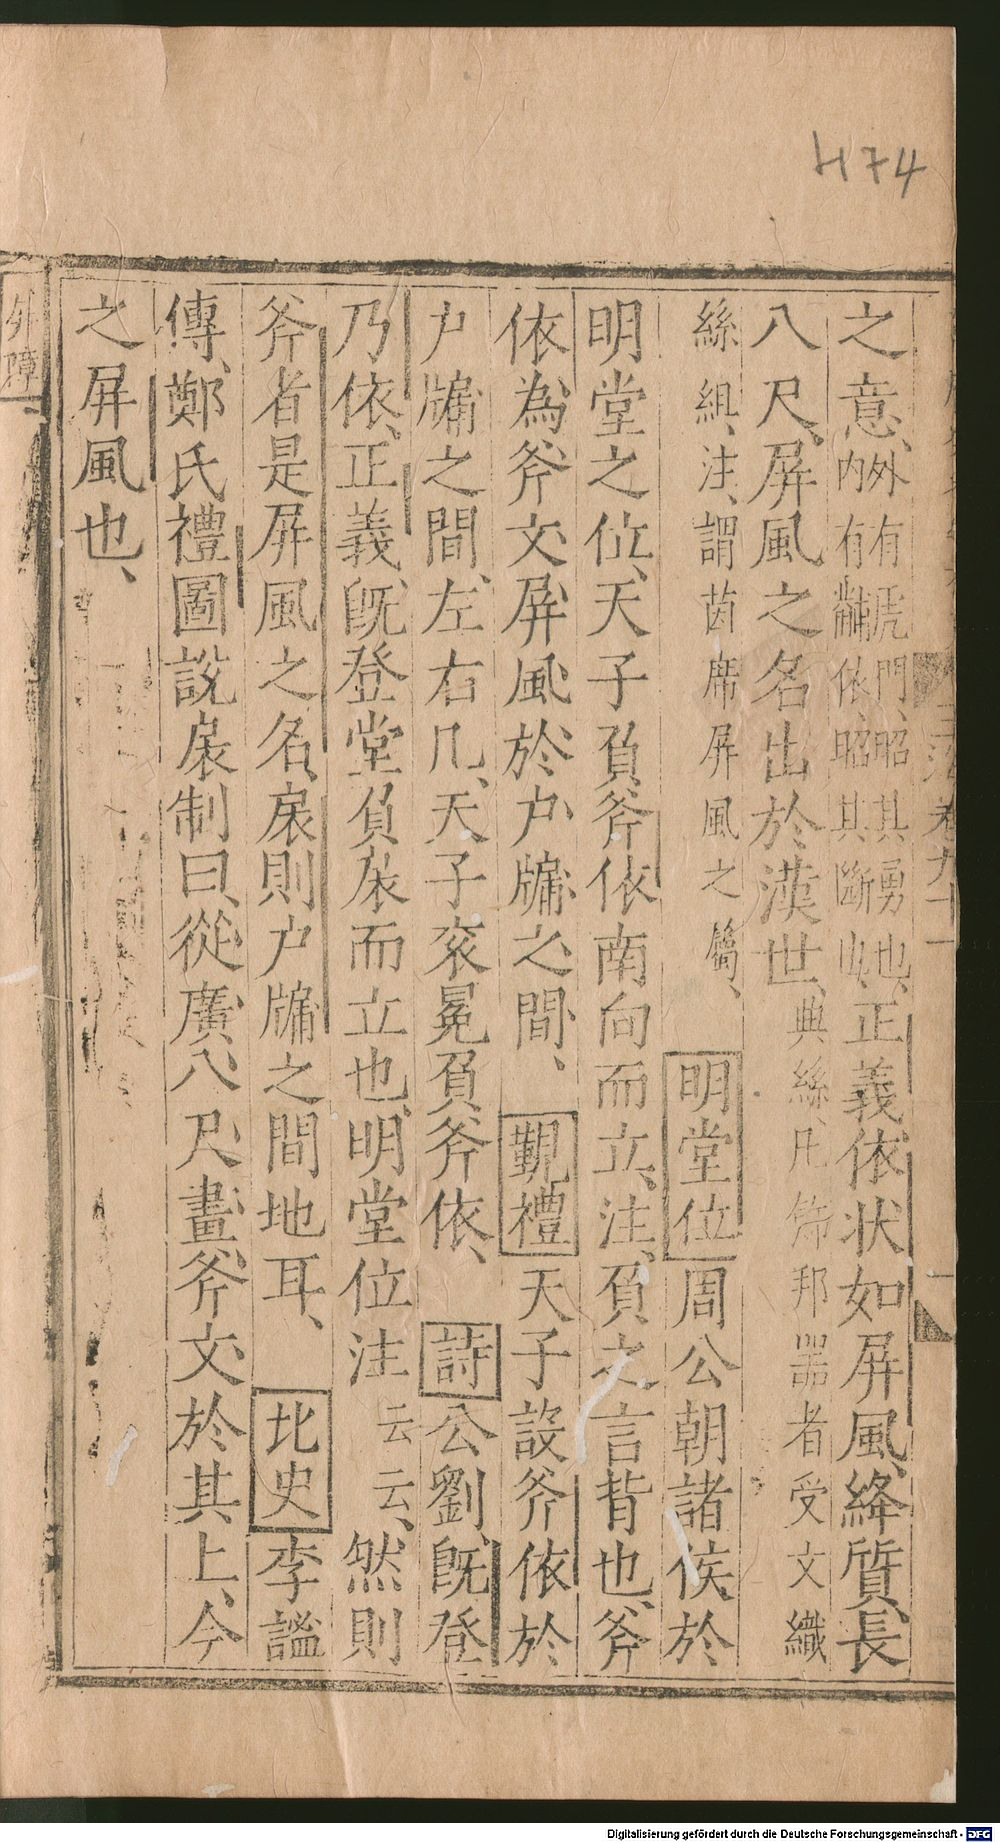 H74
之意、外有虎門、昭其勇也、內有黼依、昭其斷也、正義依状如屏風、絳質、長
八尺、屏風之名出於漢世、典絲、凡飾邦器者受文織
絲組、注、謂茵席屏風之屬、明堂位周公朝諸侯於
明堂之位、天子負斧依南向而立、注、負之言背也、斧
依為斧文屏風於户牖之間、覲禮天子設斧依於
户牖之間、左右几、天子衮冕負斧依、詩公劉、既登
乃依、正義、既登堂負扆而立也、明堂位注云云、然則
斧者是屏風之名、扆則户牖之間地耳、北史李謐
傳、鄭氏禮圖說扆制曰、從廣八尺畫斧文於其上、今
之屏風也、
外障
卷九十一
Digitalisierung gefördert durch die Deutsche Forschungsgemeinschaft - DFG